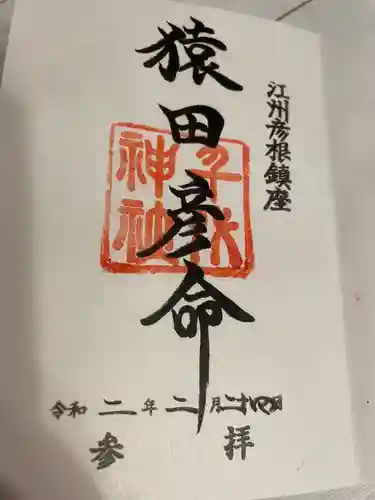 江州彦根鎮座
猿田彦命
千代
神社
令和二年二月二十四日
参拝